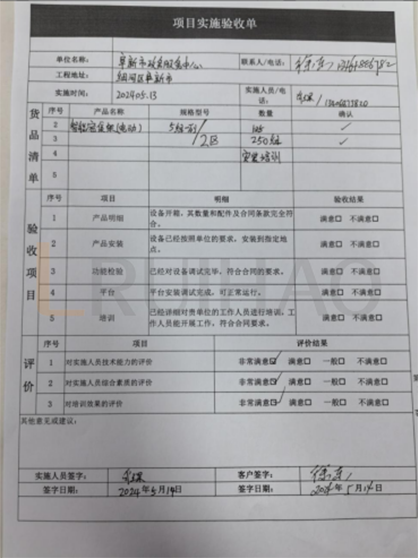 项目实施验收单
单位名称： 阜新市政务服务中心 联系人/电话：
工程地址： 细河区阜新市
实施时间： 2024.05.13 实施人员/电话：
货品清单
序号 产品名称 规格型号 数量 确认
2 智能密集架(电动) ✓
3 250组 ✓
4 安装培训
5
验收项目
序号 项目 明细 验收结果
1 产品明细 设备开箱，其数量和配件及合同条款完全符合。 满意□ 不满意□
2 产品安装 设备已经按照单位的要求，安装到指定地点。 满意□ 不满意□
3 功能检验 已经对设备调试完毕，符合合同的要求。 满意□ 不满意□
4 平台 平台安装调试完成，可正常运行。 满意□ 不满意□
5 培训 已经详细对贵单位的工作人员进行培训，工作人员能开展工作。符合合同要求。 满意□ 不满意□
评价
序号 项目 评价结果
1 对实施人员技术能力的评价 非常满意☑ 满意□ 一般□ 不满意□
2 对实施人员综合素质的评价 非常满意☑ 满意□ 一般□ 不满意□
3 对培训效果的评价 非常满意☑ 满意□ 一般□ 不满意□
其他意见或建议：
实施人员签字： 客户签字：
签字日期： 2024年5月14日 签字日期： 2024年5月14日
RUIHAO